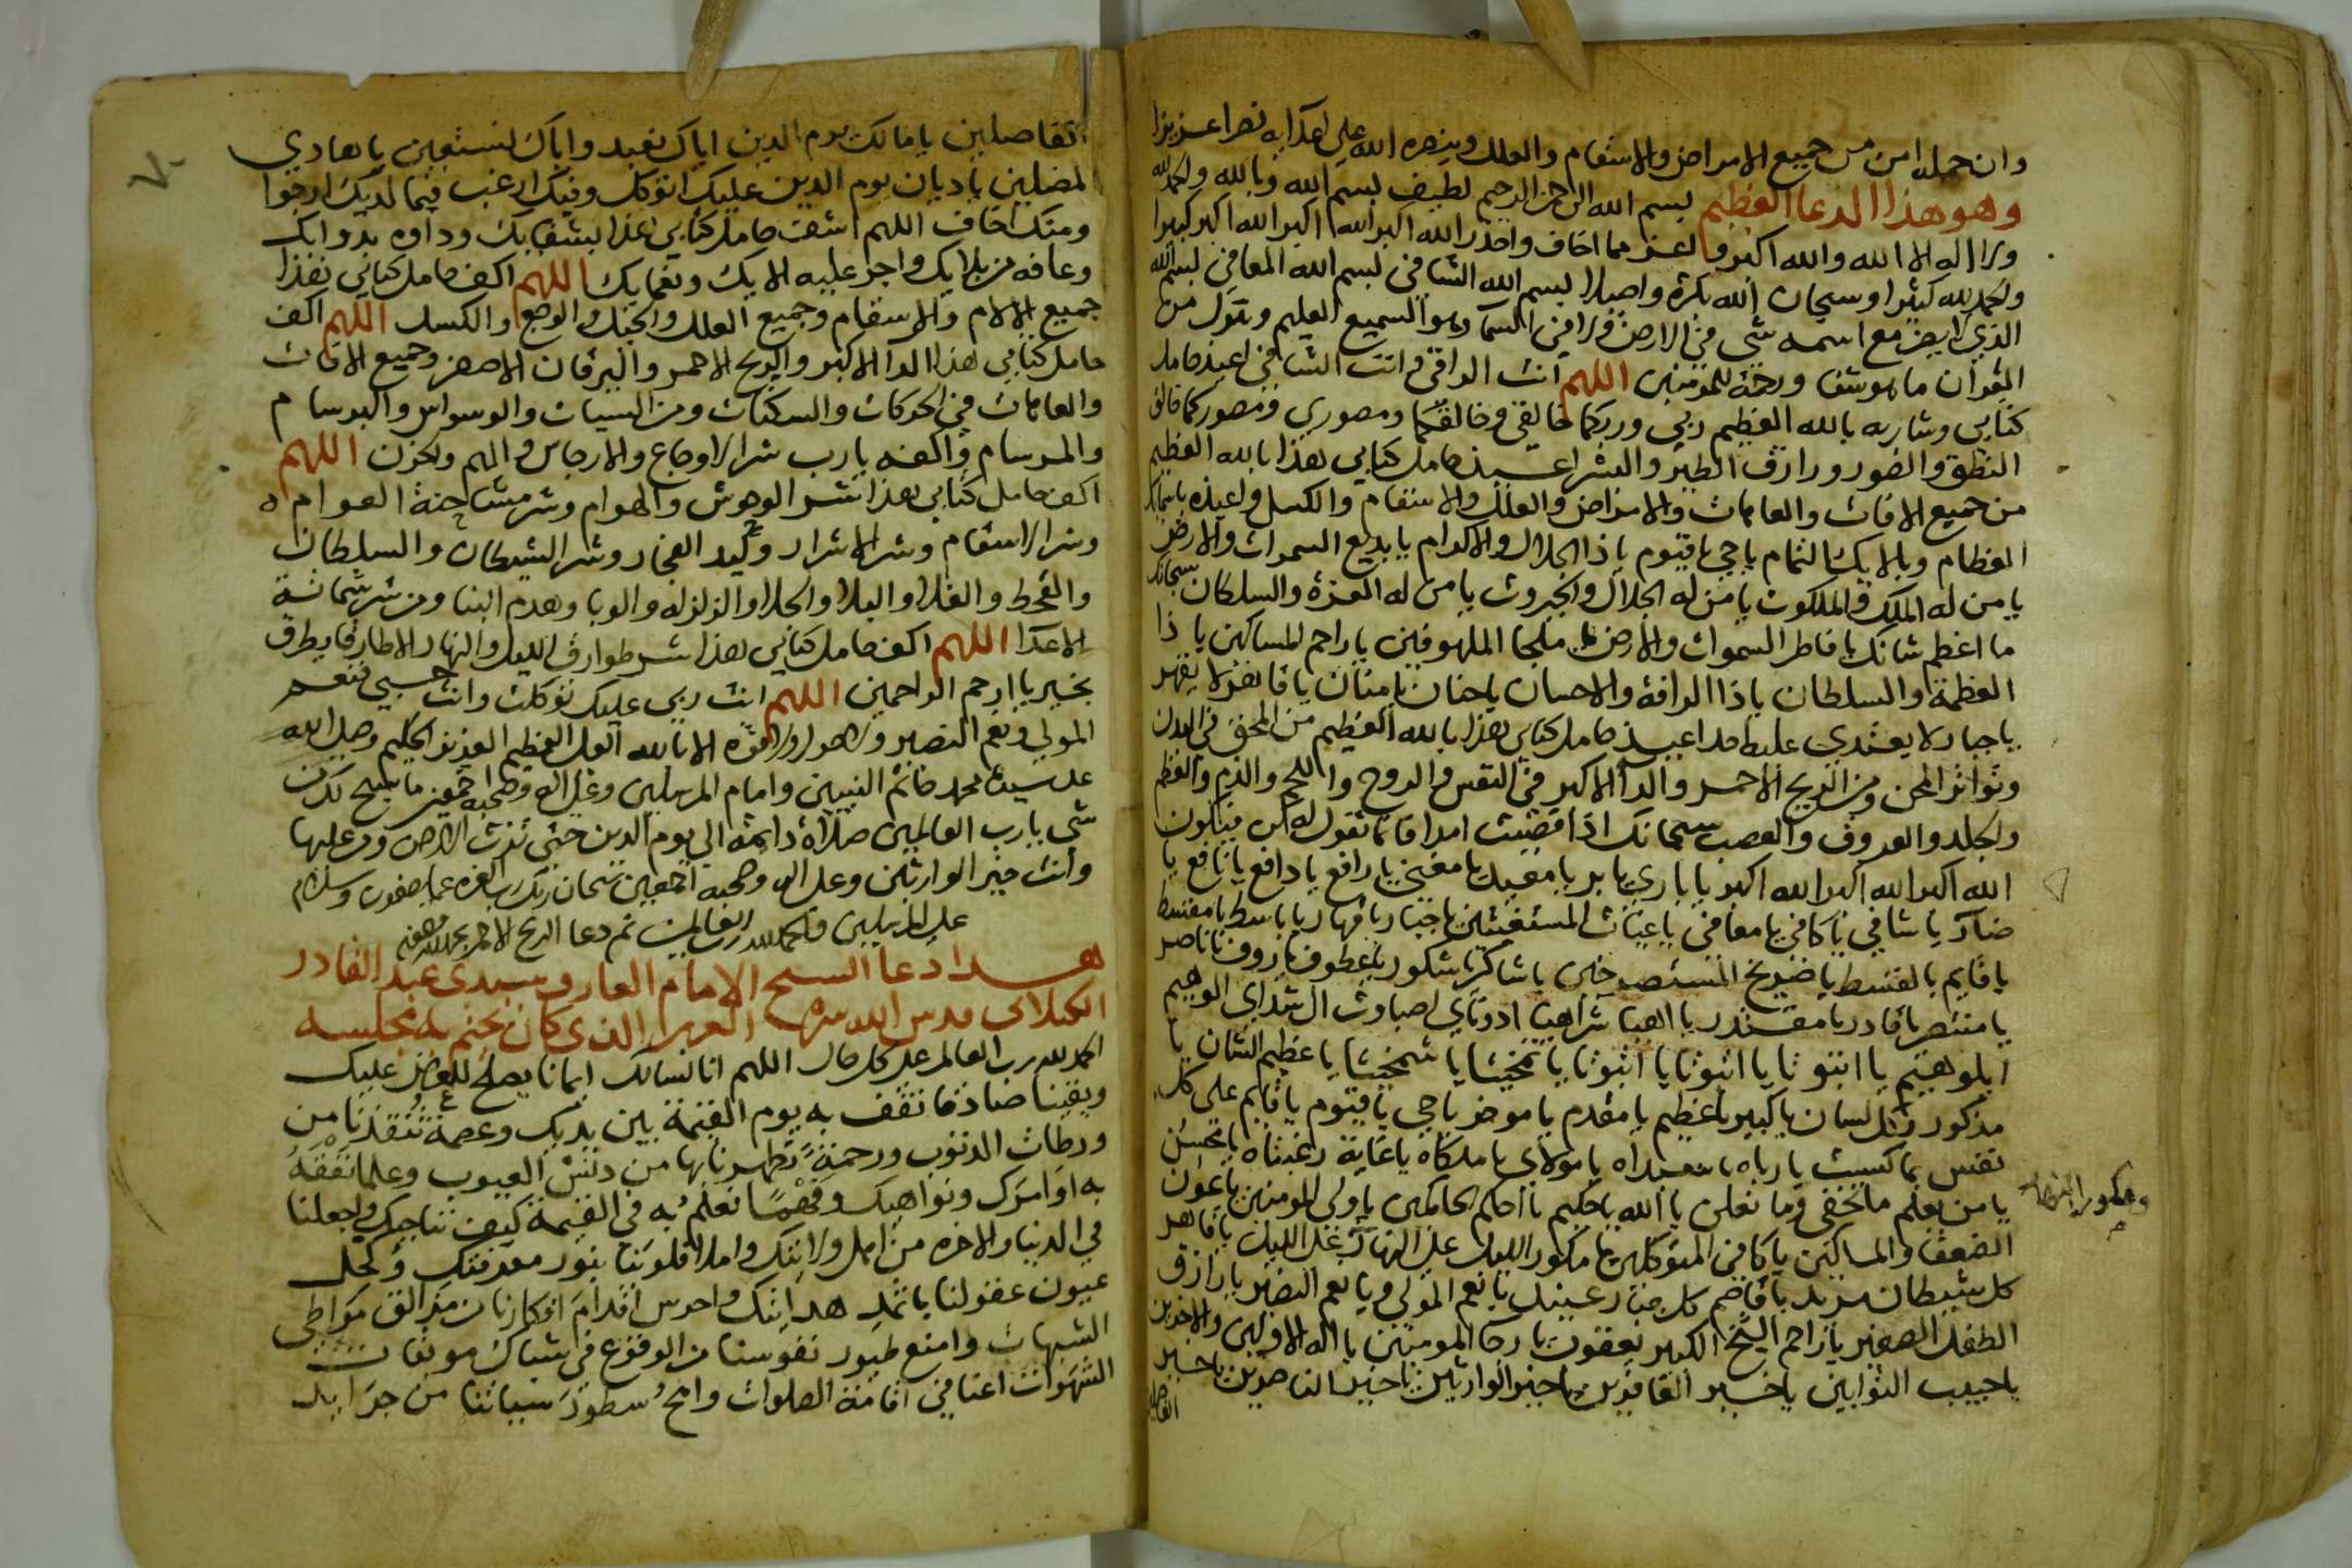 وان حمله امن من جميع الامراض والاسقام والعلل وينصره الله على اعدايه نصرا عزيزا
وهو هذا الدعا العظيم بسم الله الرحمن الرحيم لطيف بسم الله وبالله والحمد لله
ولا اله الا الله والله اكبر واعز مما اخاف واحذر الله اكبر الله اكبر الله اكبر كبيرا
والحمد لله كثيرا وسبحان الله بكرة واصيلا بسم الله الشافي بسم الله المعافي بسم الله
الذي لا يضر مع اسمه شي في الارض ولا في السما وهو السميع العليم وننزل من
القران ما هو شفا ورحمة للمومنين اللهم انت الراقي وانت الشافي اعيذ حامل
كتابي وشاربه بالله العظيم ربي وربكما خالقي وخالقكما ومصوري ومصوركما خالق
النطق والصور ورازق الطير والبشر اعيذ حامل كتابي هذا بالله العظيم
من جميع الافات والعاهات والامراض والعلل والاسقام والكسل واعيذه باسمايك
العظام وبالايك التمام ياحي يا قيوم يا ذا الجلال والاكرام يا بديع السموات والارض
يا من له الملك والملكوت يا من له الجلال والجبروت يا من له العزة والسلطان سبحانك
ما اعظم شانك يا فاطر السموات والارض يا ملجا الملهوفين يا راحم المساكين يا ذا
العظمة والسلطان يا ذا الرافة والاحسان يا حنان يا منان يا قاهر لا يقهر
يا جبار لا يعتدي عليه احد اعيذ حامل كتابي هذا بالله العظيم من المحق في البدن
وتواتر المحن ومن الريح الاحمر والدا الاكبر في النفس والروح واللحم والدم والعظم
والجلد والعروق والعصب سبحانك اذا قضيت امرا فانما تقول له كن فيكون
الله اكبر الله اكبر الله اكبر يا باري يا بر يا مغيث يا مغني يا رافع يا دافع يا نافع يا
ضار يا شافي يا كافي يا معافي يا غياث المستغيثين يا جبار يا قهار يا باسط يا مقسط
يا قايم بالقسط يا صريخ المستصرخين يا شاكر يا شكور يا عطوف يا روف يا ناصر
يا منتصر يا قادر يا مقتدر يا اهيا شراهيا ادوناي اصباوت ال شداي الوهيم
ايلوهيم يا انتوثا يا انثوثا يا انثوثا يا تمخيثا يا شمخيثا يا عظيم الشان يا
مذكور بكل لسان يا كبير يا عظيم يا مقدم يا موخر ياحي يا قيوم يا قايم على كل
نفس بما كسبت يا رباه يا سيداه يا مولاي يا ملكاه يا غاية رغبتاه يا محسن
يا من يعلم ما نخفي وما نعلن يا الله يا حكيم يا احكم الحاكمين يا ولي المومنين يا عون
الضعفا والمساكين يا كافي المتوكلين يا مكور الليل على النهار على الليل يا قاهر
ومكور النهار
كل شيطان مريد يا قاصم كل جبار عنيد يا نعم المولى ويا نعم النصير يا رازق
الطفل الصغير يا راحم الشيخ الكبير يعقوب يا رجا المومنين يا اله الاولين والاخرين
يا حبيب التوابين يا خير الغافرين يا خير الوارثين يا خير الناصرين يا خير
الفاصلين
الفاصلين يا مالك يوم الدين اياك نعبد واياك نستعين يا هادي
المضلين يا ديان يوم الدين عليك اتوكل وفيك ارغب فيما لديك ارجوا
ومنك اخاف اللهم اشف حامل كتابي هذا بشفايك وداوه بدوايك
وعافه من بلايك واجر عليه الايك ونعمايك اللهم اكف حامل كتابي هذا
جميع الالام والاسقام وجميع العلل والوجع والكسل اللهم اكف
حامل كتابي هذا الدا الاكبر والريح الاحمر واليرقان الاصفر وجميع الافات
والعاهات في الحركات والسكنات ومن السيات والوسواس والبرسام
والمرسام واكفه يارب شر الاوجاع والارجاس والهم والحزن اللهم
اكف حامل كتابي هذا شر الوحوش والهوام وشر مشاحنة العوام
وشر الاسقام وشر الاشرار وكيد الفجار وشر الشيطان والسلطان
والقحط والغلا والبلا والجلا والزلزله والوبا وهدم البنا ومن شر شماتة
الاعدا اللهم اكف حامل كتابي هذا شر طوارق الليل والنهار الا طارقا يطرق
بخير يا ارحم الراحمين اللهم انت ربي عليك توكلت وانت حسبي فنعم
المولى ونعم النصير ولا حول ولا قوه الا بالله العلي العظيم العزيز الحكيم وصل الله
على سيدنا محمد خاتم النبيين وامام المرسلين وعلى اله وصحبه اجمعين ما سبح لك من
شي يارب العالمين صلاة دايمه الى يوم الدين حتى ترث الارض ومن عليها
وانت خير الوارثين وعلى اله وصحبه اجمعين سبحان ربك رب العزه عما يصفون وسلام
على المرسلين والحمد لله رب العالمين تم دعا الريح الاحمر بحمد الله وعونه
هذا دعا الشيخ الامام العارف سيدى عبد القادر
الكيلانى قدس الله سره العزيز الذى كان يختم به مجلسه
الحمد لله رب العالم على كل حال اللهم انا نسالك ايمانا يصلح للعرض عليك
ويقينا صادقا نقف به يوم القيمة بين يديك وعصمة تنقذنا من
ورطات الذنوب ورحمة تطهرنا بها من دنس العيوب وعلما نفقه
به اوامرك ونواهيك وفهما نعلم به في القيمة كيف نناجيك واجعلنا
في الدنيا والاخره من اهل ولايتك واملا قلوبنا بنور معرفتك وكحل
عيون عقولنا باثمد هدايتك واحرس اقدام افكارنا من مزالق مواطي
الشبهات وامنع طيور نفوسنا من الوقوع في شباك موبقات
الشهوات اعنا في اقامة الصلوات وامح سطور سياتنا من جرايد